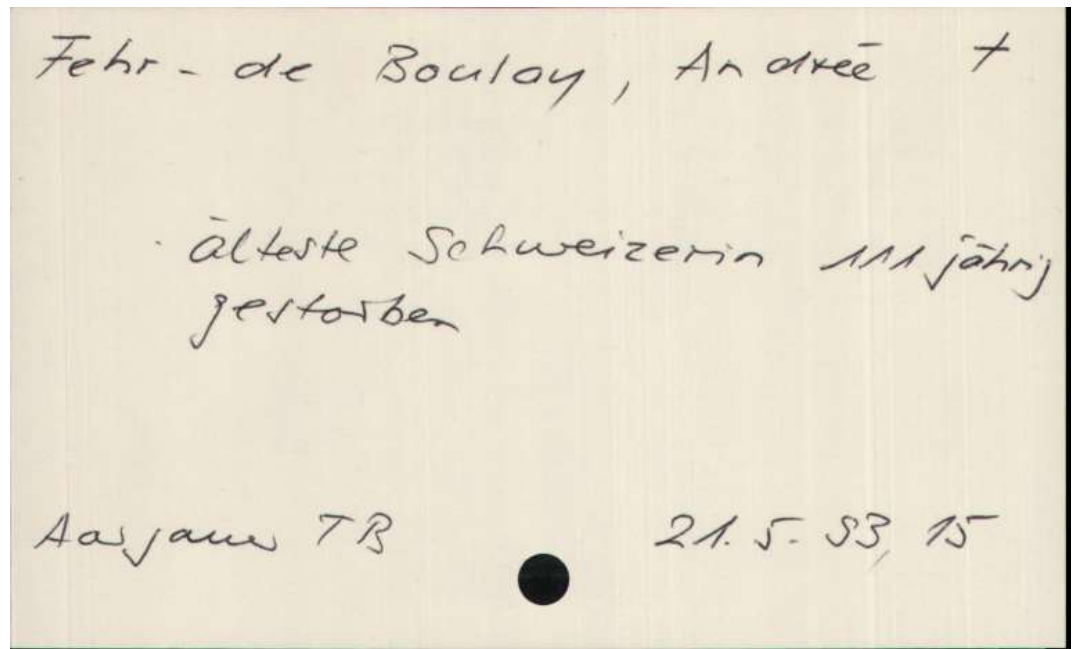 Fehr - de Boulay, Andrée †
älteste Schweizerin 111 jährig
gestorben
Aargauer TB 21.5.93, 15